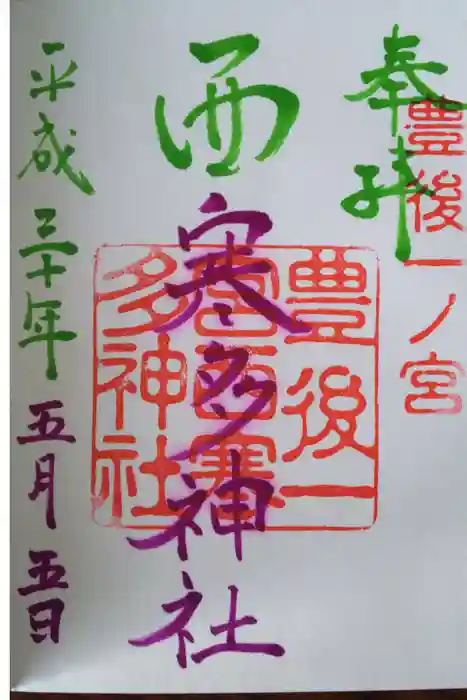 奉拝
豊後一ノ宮
西寒多神社
豊後一
宮西寒
多神社
平成三十年五月五日